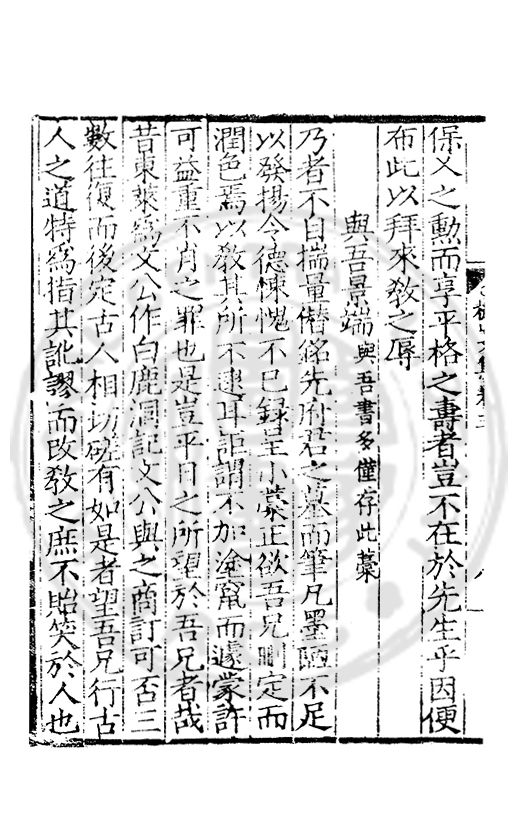 保乂之勳而享平格之壽者豈不在於先生乎因便
布此以拜來教之辱
與吾景端與吾書多僅存此藁
乃者不自揣量僣銘先府君之墓而筆凡墨陋不足
以發揚令德悚愧不已録呈小藁正欲吾兄刪定而
潤色焉以教其所不逮耳詎謂不加塗竄而遽蒙許
可益重不肖之罪也是豈平日之所望於吾兄者哉
昔東萊為文公作白鹿洞記文公與之商訂可否三
數往復而後定古人相切磋有如是者望吾兄行古
人之道特為指其訛謬而改教之庶不貽笑於人也